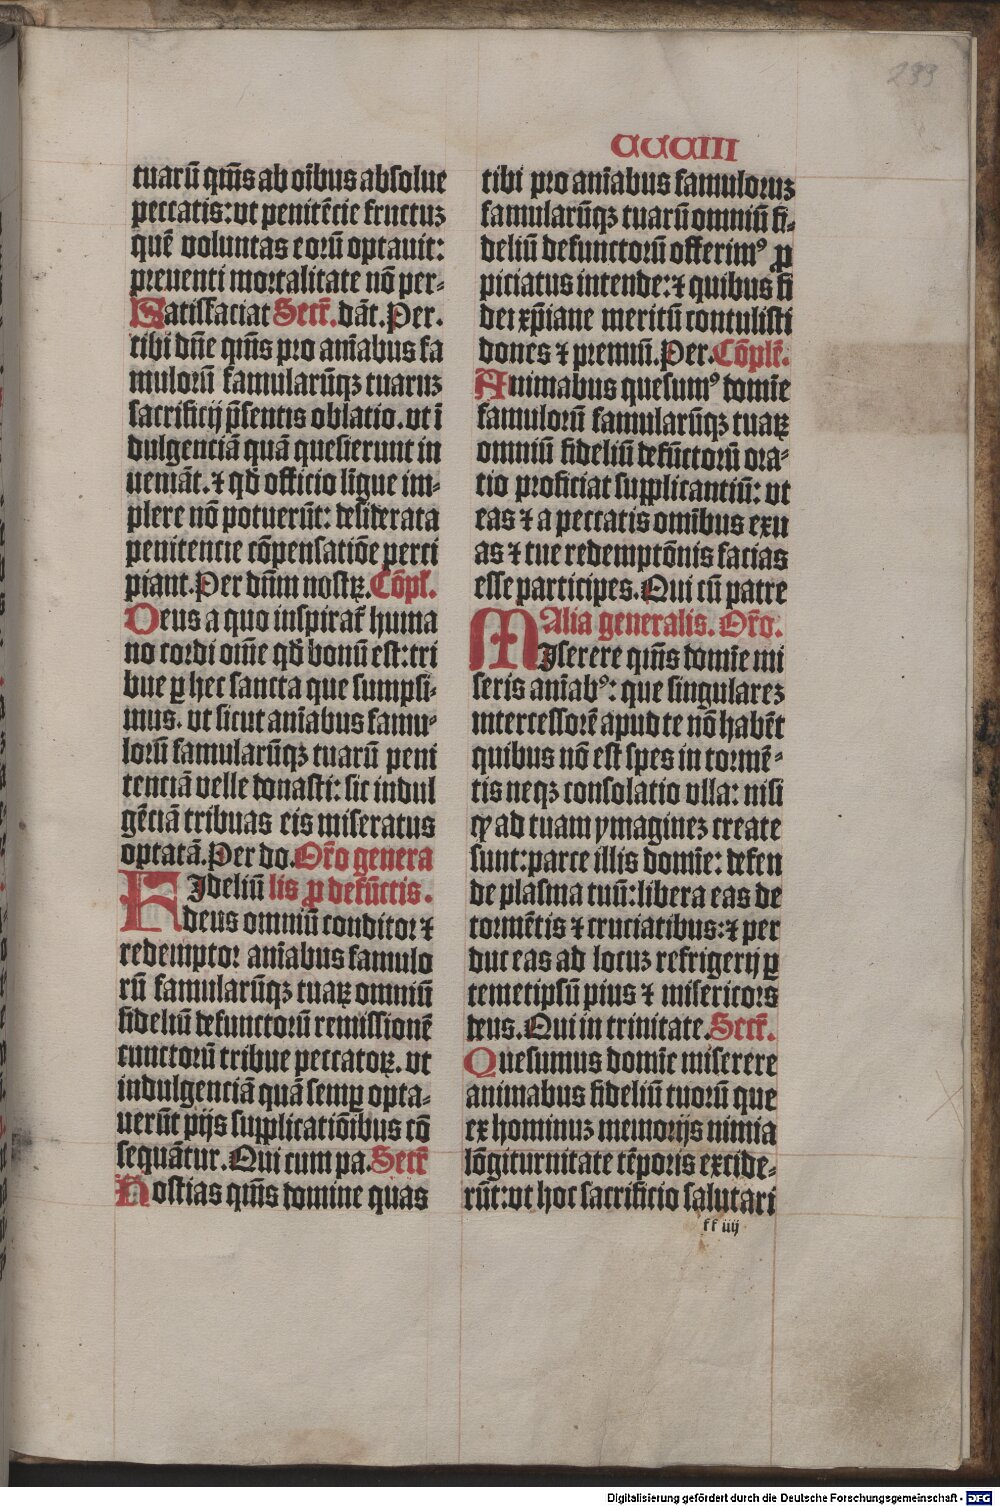 299
CCCIII
tuarū qm̄s ab oībus absolue
peccatis: vt penitēcie fructuꝫ
quē voluntas eorū optauit:
preuenti mortalitate nō per-
Satisfaciat Secr̄. dāt. Per.
tibi dn̄e qm̄s pro aīabus fa
mulorū famularūqꝫ tuaruꝫ
sacrificij p̄sentis oblatio. vt ī
dulgenciā quā quesierunt in
ueniāt. ⁊ qd̄ officio līgue im-
plere nō potuerūt: desiderata
penitencie cōpensatiōe perci
piant. Per dn̄m nostrꝫ. Cōpl̄.
Deus a quo inspirat̄ huma
no cordi om̄e qd̄ bonū est: tri
bue ꝑ hec sancta que sumpsi-
mus. vt sicut aīabus famu-
lorū famularūqꝫ tuarū peni
tenciā velle donasti: sic indul
gēciā tribuas eis miseratus
optatā. Per do. Or̄o genera
FIdeliū lis ꝓ defūctis.
deus omniū conditor ⁊
redemptor aīabus famulo
rū famularūqꝫ tuaꝝ omniū
fideliū defunctorū remissionē
cunctorū tribue peccatoꝝ. vt
indulgenciā quā semꝑ opta-
uerūt pijs supplicatiōibus cō
sequātur. Qui cum pa. Secr̄
Hostias qm̄s domine quas
tibi pro aīabus famuloruꝫ
famularūqꝫ tuarū omniū fi-
deliū defunctorū offerimꝰ ꝓ
piciatus intende: ⁊ quibus fi
dei xp̄iane meritū contulisti
dones ⁊ premiū. Per. Cōpl̄.
Animabus quesumꝰ domīe
famulorū famularūqꝫ tuaꝝ
omniū fideliū defūctorū ora-
tio proficiat supplicantiū: vt
eas ⁊ a peccatis omībus exu
as ⁊ tue redemptōnis facias
esse participes. Qui cū patre
Alia generalis. Or̄o.
MIserere qm̄s domīe mi
seris aīabꝰ: que singulareꝫ
intercessorē apud te nō habēt
quibus nō est spes in tormē-
tis neqꝫ consolatio vlla: nisi
qꝫ ad tuam ymagineꝫ create
sunt: parce illis domīe: defen
de plasma tuū: libera eas de
tormētis ⁊ cruciatibus: ⁊ per
duc eas ad locuꝫ refrigerij ꝑ
temetipsū pius ⁊ misericors
deus. Qui in trinitate. Secr̄.
Quesumus domīe miserere
animabus fideliū tuorū que
ex hominuꝫ memorijs nimia
lōgiturnitate tēporis excide-
rūt: vt hoc sacrificio salutari
ff iiij
Digitalisierung gefördert durch die Deutsche Forschungsgemeinschaft - DFG